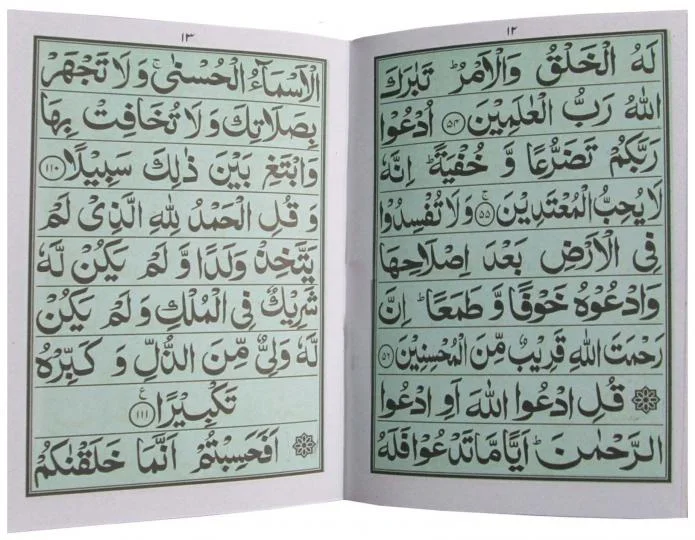 ١٢
لَهُ الْخَلْقُ وَالْاَمْرُ ؕ تَبٰرَكَ
اللّٰهُ رَبُّ الْعٰلَمِيْنَ ﴿٥٤﴾ اُدْعُوْا
رَبَّكُمْ تَضَرُّعًا وَّ خُفْيَةً ؕ اِنَّهٗ
لَا يُحِبُّ الْمُعْتَدِيْنَ ۚ ﴿٥٥﴾ وَلَا تُفْسِدُوْا
فِى الْاَرْضِ بَعْدَ اِصْلَاحِهَا
وَادْعُوْهُ خَوْفًا وَّ طَمَعًا ؕ اِنَّ
رَحْمَتَ اللّٰهِ قَرِيْبٌ مِّنَ الْمُحْسِنِيْنَ ﴿٥٦﴾
۞ قُلِ ادْعُوا اللّٰهَ اَوِ ادْعُوا
الرَّحْمٰنَ ؕ اَيًّا مَّا تَدْعُوْا فَلَهُ
١٣
الْاَسْمَآءُ الْحُسْنٰى ۚ وَ لَا تَجْهَرْ
بِصَلَاتِكَ وَ لَا تُخَافِتْ بِهَا
وَابْتَغِ بَيْنَ ذٰلِكَ سَبِيْلًا ﴿١١٠﴾
وَ قُلِ الْحَمْدُ لِلّٰهِ الَّذِىْ لَمْ
يَتَّخِذْ وَلَدًا وَّ لَمْ يَكُنْ لَّهٗ
شَرِيْكٌ فِى الْمُلْكِ وَ لَمْ يَكُنْ
لَّهٗ وَلِىٌّ مِّنَ الذُّلِّ وَ كَبِّرْهُ
تَكْبِيْرًا ﴿١١١﴾ ع
۞ اَفَحَسِبْتُمْ اَنَّمَا خَلَقْنٰكُمْ